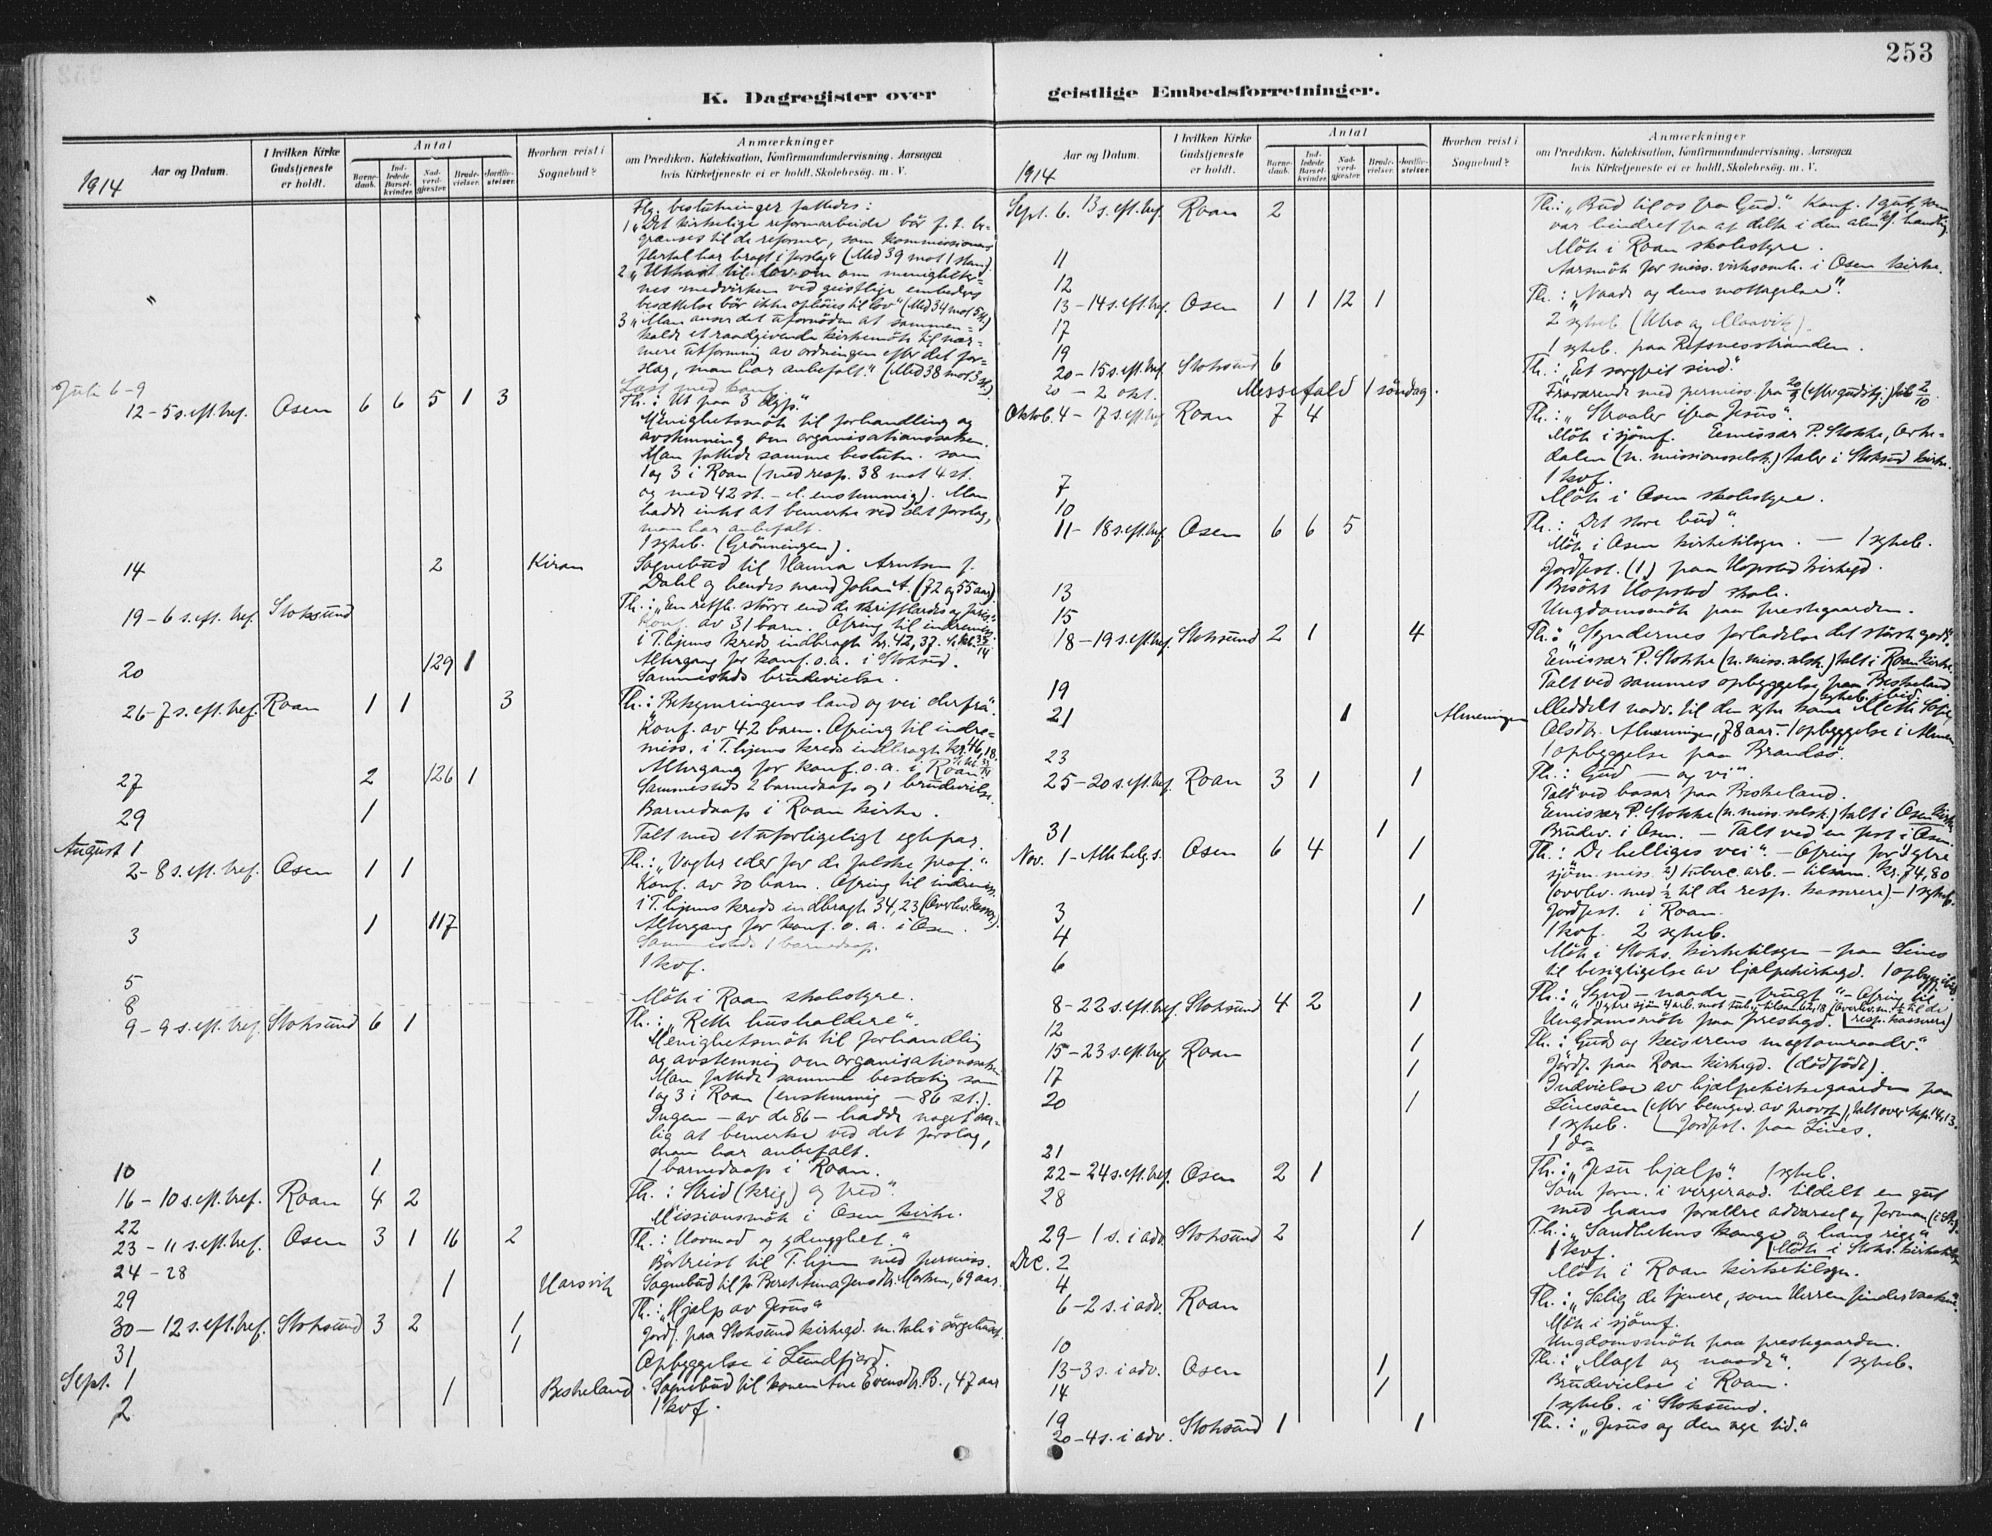 253
K. Dagregister over geistlige Embedsforretninger.
Aar og Datum.
1914
I hvilken Kirke Gudstjeneste er holdt.
Antal
Barne-daab.
Ind-ledede Barsel-kvinder.
Nad-verd-gjæster.
Brude-vielser.
Jordfæ-stelser.
Hvorhen reist i Sognebud?
Anmærkninger
om Prædiken, Katekisation, Konfirmandundervisning, Aarsagen
hvis Kirketjeneste ei er holdt, Skolebesøg. m. V.
Flg. beslutninger fattedes:
1 „Det kirkelige reformarbeide bör f. t. be-
grænses til de reformer, som kommissionens
flertal har bragt i forslag" (Med 39 mot 1 stem)
2 „Utkast til lov om menighete-
nes medvirken ved geistlige embeders
besættelse bör ikke ophöies til lov" (Med 34 mot 5 st.)
3 „Man anser det ufornöden at sammen-
kalde et raadgivende kirkemöte til nær-
mere utformning av ordningen efter det for-
slag, man har anbefalt." (Med 38 mot 3 st.)
Juli 6-9 Læst med konf.
12-5 s. eft. tref. Osen 6 6 5 1 3 Th.: Ut paa
Menighetsmöte til forhandling og
avstemning om organisationssaken.
Man fattede samme beslutn. som
1 og 3 i Roan (med resp. 38 mot 4 st.
og med 42 st. - d. enstemmig). Man
hadde intet at bemerke ved det forslag,
man har anbefalt.
1 sykeb. (Grönningen).
14 2 Kiran Sognebud til Hanna Arntsen f.
Dahl og hendes mand Johan A. (72 og 55 aar)
19-6 s. eft. tref. Stoksund Th.: „En retf. större end de skriftlærdes og faris."
Konf. av 31 barn. Ofring til indremis.
i T.hjems kreds indbragte kr. 42,37.
20 129 1 Altergang for konf. o.a. i Stoksund.
Sammesteds brudevielse.
26-7 s. eft. tref. Roan 1 1 3 Th.: Bekymringens land og vei derfra".
Konf. av 42 barn. Ofring til indre-
miss. i T.hjems kreds indbragte kr. 46,18.
27 2 126 1 Altergang for konf. o.a. i Roan.
Sammesteds 2 barnedaap og 1 brudevielse.
29 1 Barnedaap i Roan kirke.
August 1 Talt med et uforligeligt egtepar.
2-8 s. eft. tref. Osen 1 1 Th.: „Vogter eder for de falske prof."
Konf. av 30 barn. Ofring til indremiss.
i T.hjems kreds indbragte 34,23
3 1 117 Altergang for konf. o. a. i Osen.
Sammesteds 1 barnedaap.
5 1 kof.
8 Möte i Roan skolestyre.
9-9 s. eft. tref. Stoksund 6 1 Th.: „Rette husholdere".
Menighetsmöte til forhandling
og avstemning om organisationssaken
Man fattede samme beslutning som
1 og 3 i Roan (enstemmig - 86 st.).
Ingen - av de 86 - hadde noget sær-
lig at bemerke ved det forslag,
man har anbefalt.
10 1 1 barnedaap i Roan.
16-10 s. eft. tref. Roan 4 2 Th.: Strid (krig) og fred".
22 Missionsmöte i Osen kirke.
23-11 s. eft. tref. Osen 3 1 16 2 Th.: Hovmod og ydmyghet."
24-28 Bortreist til T.hjem med permiss.
29 1 Harsvik Sognebud til Berethe 69 aar.
30-12 s. eft. tref. Stoksund 3 2 1 Th.: „Hjelp av Jesus"
31 1 Jordf. paa Stoksund kirkegd. m. tale i sörgehuset.
Sept. 1 Opbyggelse i Sundfjord.
2 1 Beskeland Sognebud til konen Ane Evensdtr. B., 47 aar
1 kof.
Aar og Datum.
1914
I hvilken Kirke Gudstjeneste er holdt.
Antal
Barne-daab.
Ind-ledede Barsel-kvinder.
Nad-verd-gjæster.
Brude-vielser.
Jordfæ-stelser.
Hvorhen reist i Sognebud?
Anmærkninger
om Prædiken, Katekisation, Konfirmandundervisning, Aarsagen
hvis Kirketjeneste ei er holdt, Skolebesøg. m. V.
Sept. 6. 13 s. eft. tref. Roan 2 Th.: „Bud til os fra Gud." Konf. 1 gut, som
var hindret fra at delta i den alm. kf. handling.
11 Möte i Roan skolestyre.
12 Aarsmöte for miss. virksomh. i Osen kirke.
13-14 s. eft. tref. Osen 1 1 12 1 Th.: „Naade og dens mottagelse".
17 2 sykeb.
19 1 sykeb. paa Refsnesstranden.
20-15 s. eft. tref. Stoksund 6 Th.: „Et sorgfrit sind."
20 - 2 okt. Messefald 1 söndag. Fraværende med permiss. fra 20/9 (efter gudstj.) til 2/10
Oktob. 4-17 s. eft. tref. Roan 7 4 Th.: „Straaler ifra Jesus".
Möte i sjömf. Emissær P. Stokke,
(n. missionsselsk.) taler i Stoksund kirke.
7 1 kof.
10 Möte i Osen skolestyre.
11-18 s. eft. tref. Osen 6 6 5 Th.: „Det store bud".
Möte i Osen kirketilsyn. - 1 sykeb.
Jordfest. (1) paa Hopstad kirkegd.
13 Besökt Hopstad skole.
15 Ungdomsmöte paa prestegaarden.
18-19 s. eft. tref. Stoksund 2 1 4 Th.: „Syndernes forladelse det störste gode".
Emissær P. Stokke (n. miss. selsk.) talt i Roan kirke.
19 Talt ved sammes opbyggelse paa Beskeland.
21 1 Almenningen Meddelt nadv. til den syke kone Mette
Olsdtr. Almenningen, 78 aar. - 1 opbyggelse i Almen.
23 1 opbyggelse paa Brandsö.
25-20 s. eft. tref. Roan 3 1 1 Th.: Gud - og vi".
Talt ved basar paa Beskeland.
Emissær P. Stokke (n. miss. selsk.) talt i Osen kirke
31 1 Brudev. i Osen. - Talt ved en fest i Osen.
Nov. 1-Alle helg. s. Osen 6 4 1 Th.: „De helliges vei". - Ofring for
sjöm. miss. tuberc. arb. - tilsam. kr. 74,80
(overlev. med ½ til de resp. kasserere) - 1 sykeb.
3 1 Jordfest. i Roan.
4 1 kof. 2 sykeb.
6 Möte i Stoks. kirketilsyn - paa Lines
til besigtigelse av hjælpekirkegd.
8-22 s. eft. tref. Stoksund 4 2 1 Th.: „Synd - naade - frugt" - Ofring til
12 Ungdomsmöte paa prestegd.
15-23 s. eft. tref. Roan 1 Th.: Gud og keiserens magtomraader."
17 1 Jordf. paa Roan kirkegd. (dödfödt).
20 1 Indvielse av hjælpekirkegaarden paa
Linesöen
1 sykeb. Jordfest. paa Lines.
21 1 do
22-24 s. eft. tref. Osen 2 1 Th.: „Jesu hjælp". 1 sykeb.
28 Som form. i vergeraad. tildelt en gut
med hans forældre advarsel og forman.
29-1 s. i adv. Stoksund 2 1 Th.: „Sandhetens konge og hans rige"
Dec. 2 1 kof. Möte i Stoks. kirketilsyn
4 Möte i Roan kirketilsyn.
6-2 s. i adv. Roan Th.: „Salig de tjenere, som Herren finder vaakne".
Möte i sjömf.
10 Ungdomsmöte paa prestegaarden.
13-3 s. i adv. Osen 1 Th.: „Magt og naade". 1 sykeb.
14 1 Brudevielse i Roan.
19 1 sykeb. i Stoksund.
20-4 s. i adv. Stoksund 1 1 Th.: „Jesus og den nye tid."